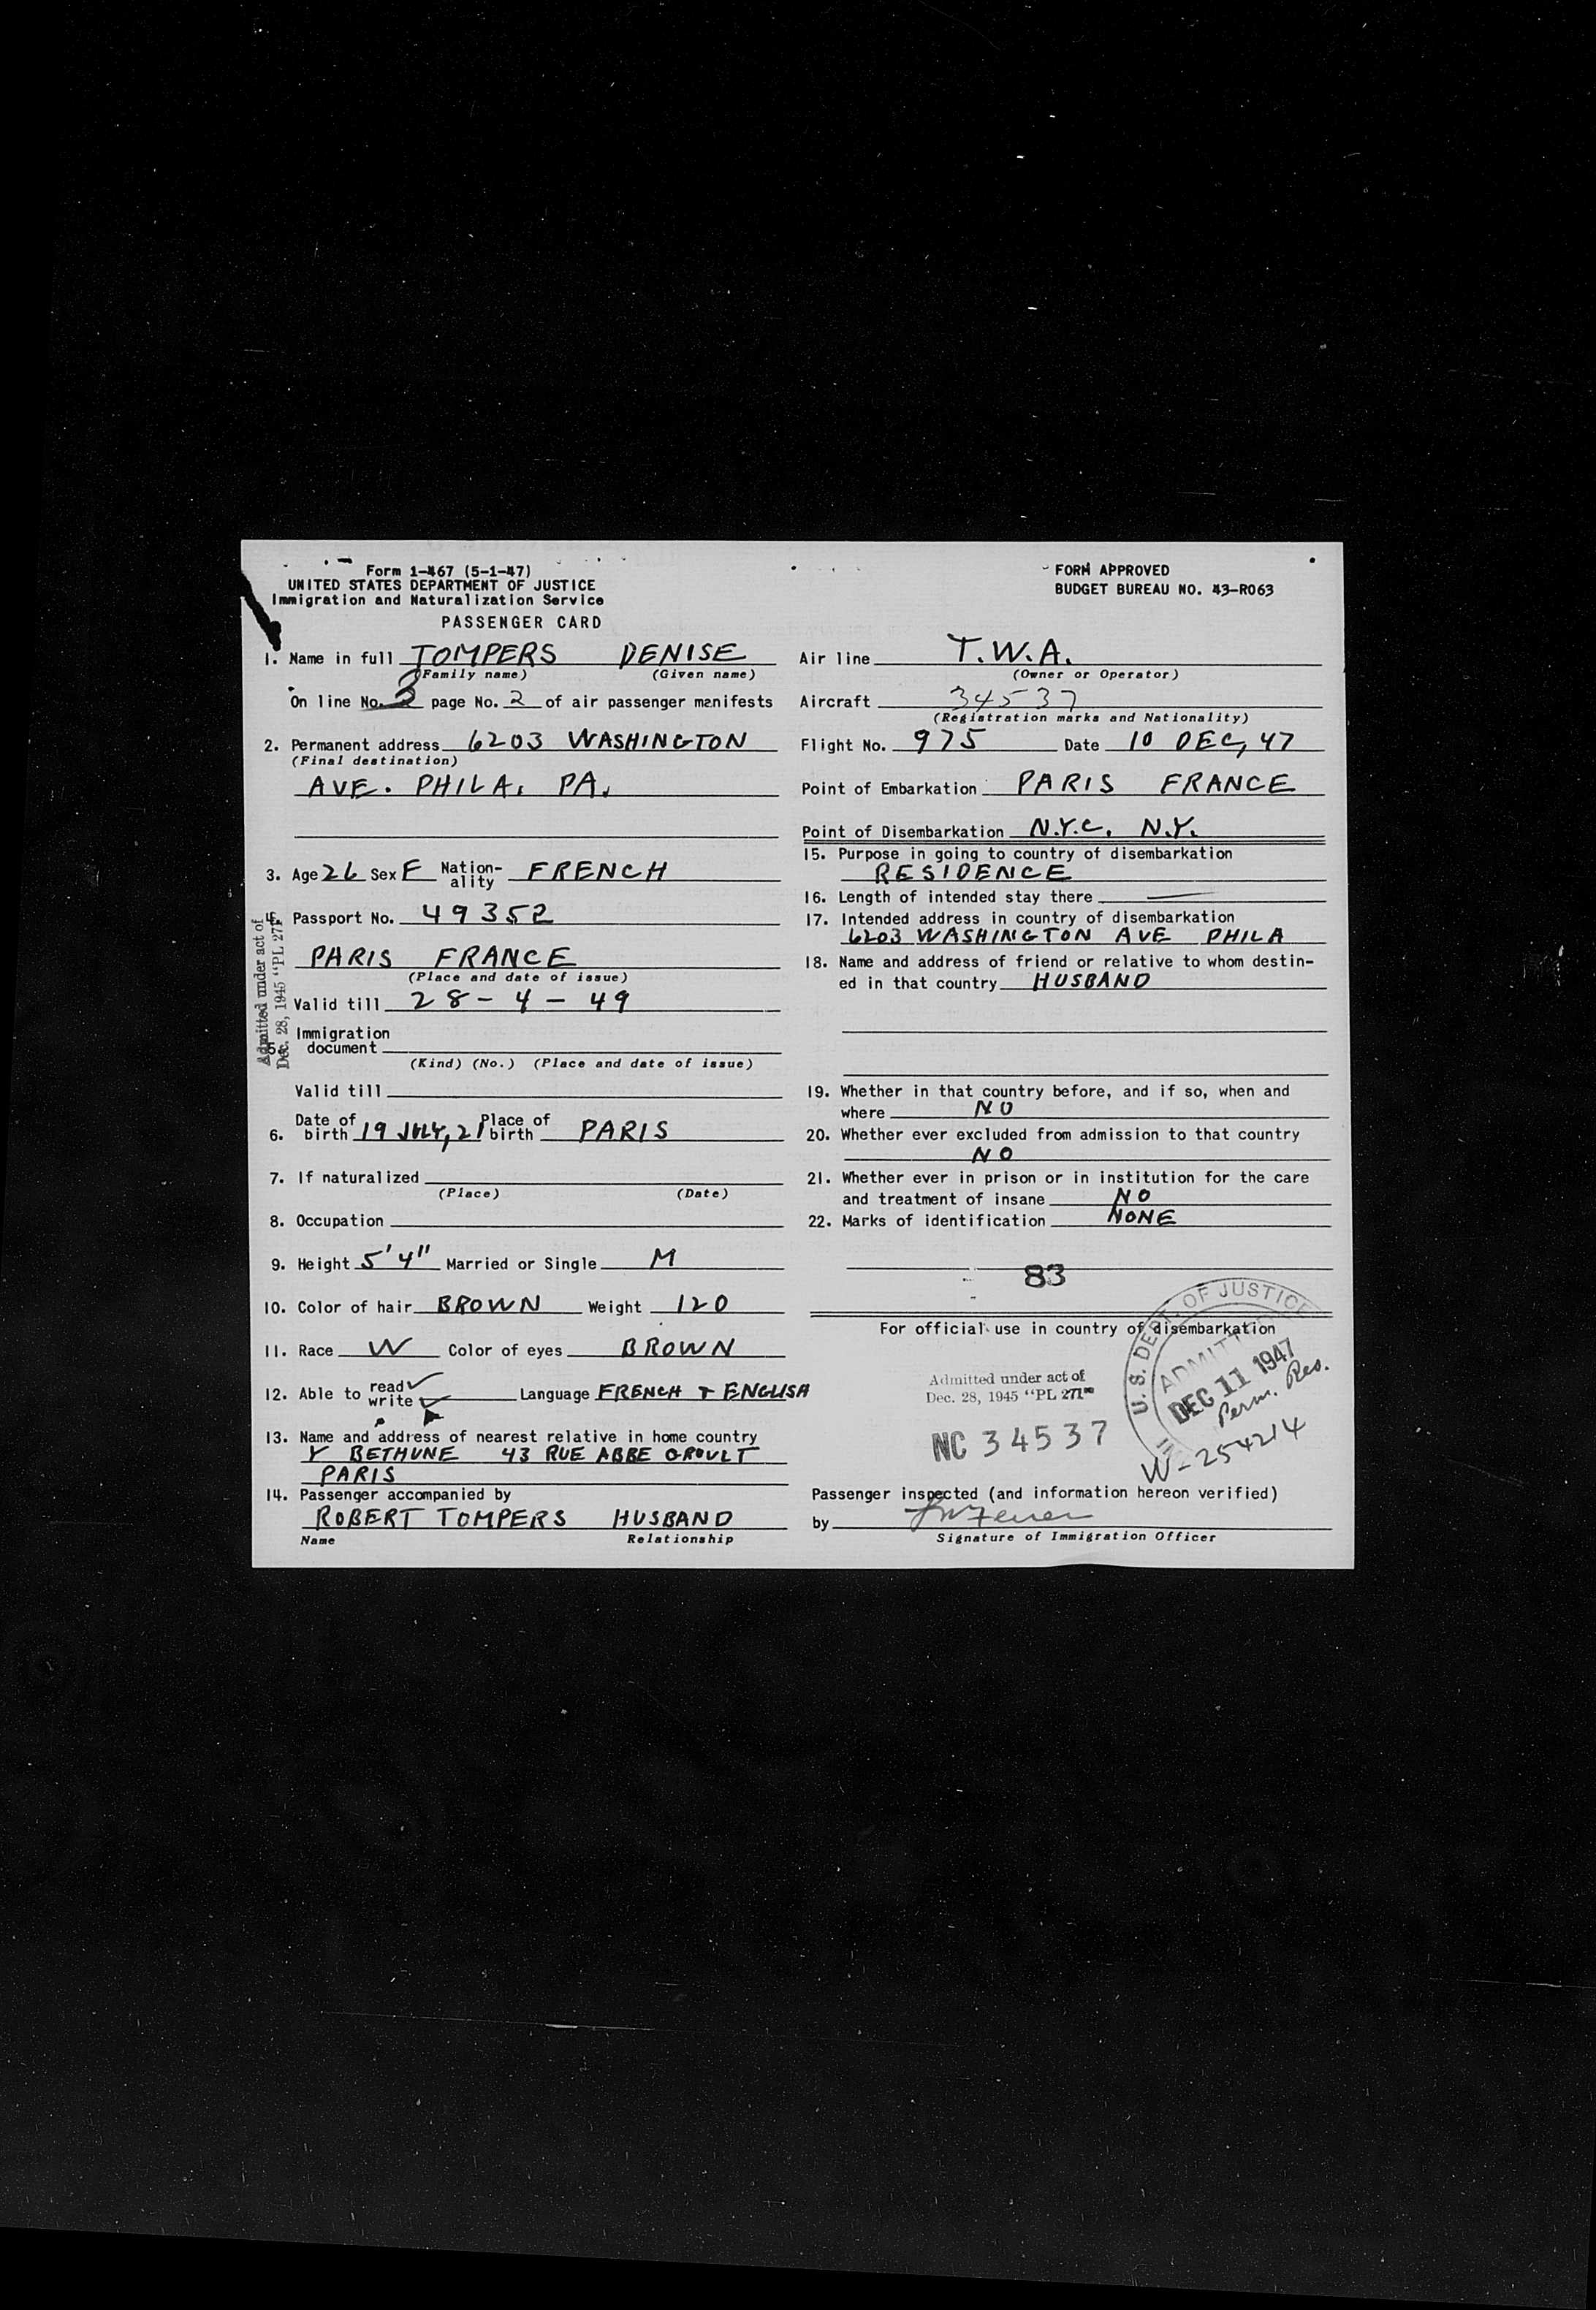 Form I-467 (5-1-47)
UNITED STATES DEPARTMENT OF JUSTICE
Immigration and Naturalization Service
PASSENGER CARD
FORM APPROVED
BUDGET BUREAU NO. 43-R063
1. Name in full TOMPERS DENISE
(Family name) (Given name)
On line No. 3 page No. 2 of air passenger manifests
2. Permanent address 6203 WASHINGTON
(Final destination)
AVE. PHILA. PA.
3. Age 26 Sex F Nation-ality FRENCH
4. Passport No. 49352
PARIS FRANCE
(Place and date of issue)
Valid till 28-4-49
5. Immigration
document
(Kind) (No.) (Place and date of issue)
Valid till
Admitted under act of
Dec. 28, 1945 "PL 271"
6. Date of birth 19 JULY, 21 Place of birth PARIS
7. If naturalized
(Place) (Date)
8. Occupation
9. Height 5'4" Married or Single M
10. Color of hair BROWN Weight 120
11. Race W Color of eyes BROWN
12. Able to read ✓ write ✓ Language FRENCH & ENGLISH
13. Name and address of nearest relative in home country
Y BETHUNE 43 RUE ABBE GROULT
PARIS
14. Passenger accompanied by
ROBERT TOMPERS HUSBAND
Name Relationship
Air line T.W.A.
(Owner or Operator)
Aircraft 34537
(Registration marks and Nationality)
Flight No. 975 Date 10 DEC, 47
Point of Embarkation PARIS FRANCE
Point of Disembarkation N.Y.C. N.Y.
15. Purpose in going to country of disembarkation
RESIDENCE
16. Length of intended stay there —
17. Intended address in country of disembarkation
6203 WASHINGTON AVE PHILA
18. Name and address of friend or relative to whom destin-
ed in that country HUSBAND
19. Whether in that country before, and if so, when and
where NO
20. Whether ever excluded from admission to that country
NO
21. Whether ever in prison or in institution for the care
and treatment of insane NO
22. Marks of identification NONE
83
For official use in country of disembarkation
Admitted under act of
Dec. 28, 1945 "PL 271"
NC 34537
U. S. DEPT. OF JUSTICE
ADMITTED
DEC 11 1947
Perm. Res.
W-254214
Passenger inspected (and information hereon verified)
by
Signature of Immigration Officer